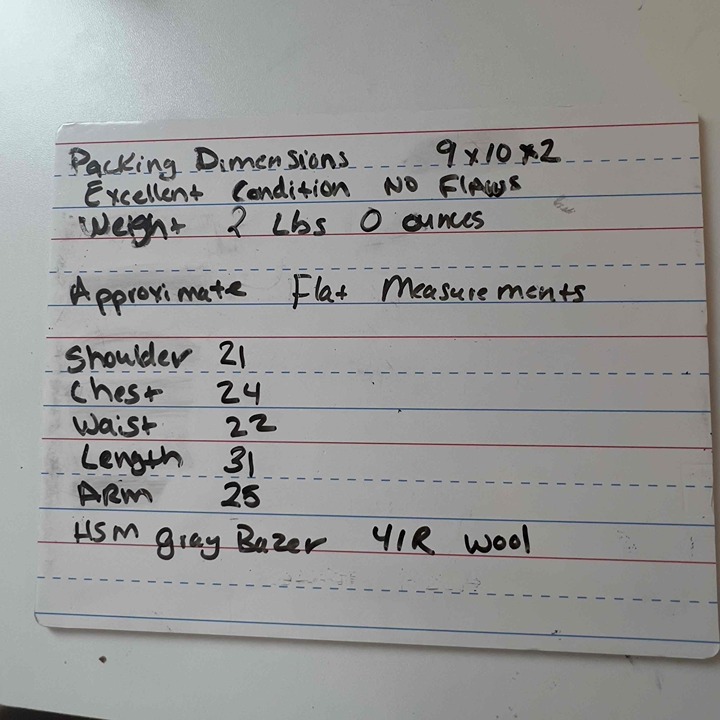 Packing Dimensions 9x10x2
Excellent Condition NO Flaws
Weight 2 Lbs 0 ounces
Approximate Flat Measurements
Shoulder 21
Chest 24
Waist 22
Length 31
ARM 25
HSM gray Bazer 41R Wool